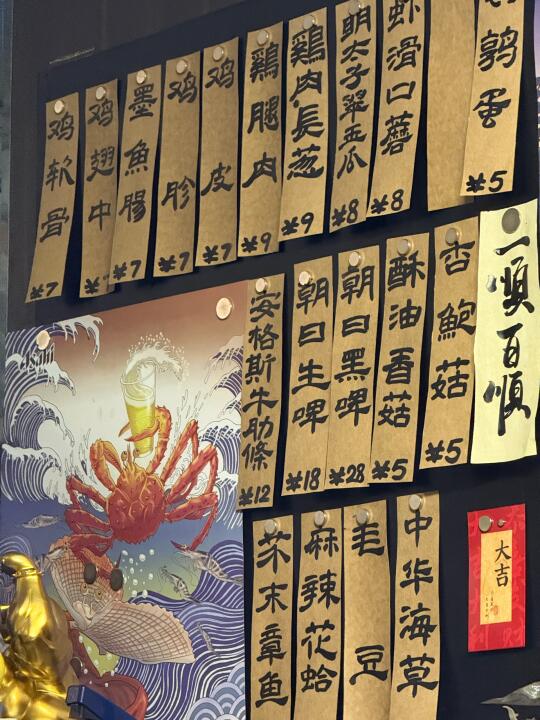 鸡软骨
¥7
鸡翅中
墨魚腸
¥7
鸡胗
¥7
鸡皮
¥7
鷄腿肉
¥9
鷄肉長葱
¥9
明太子翠玉瓜
¥8
虾滑口蘑
¥8
鹑蛋
¥5
安格斯牛肋條
¥12
朝日生啤
¥18
朝日黑啤
¥28
酥油香菇
¥5
杏鮑菇
¥5
一順百順
Asahi
芥末章鱼
麻辣花蛤
毛豆
中华海草
大吉